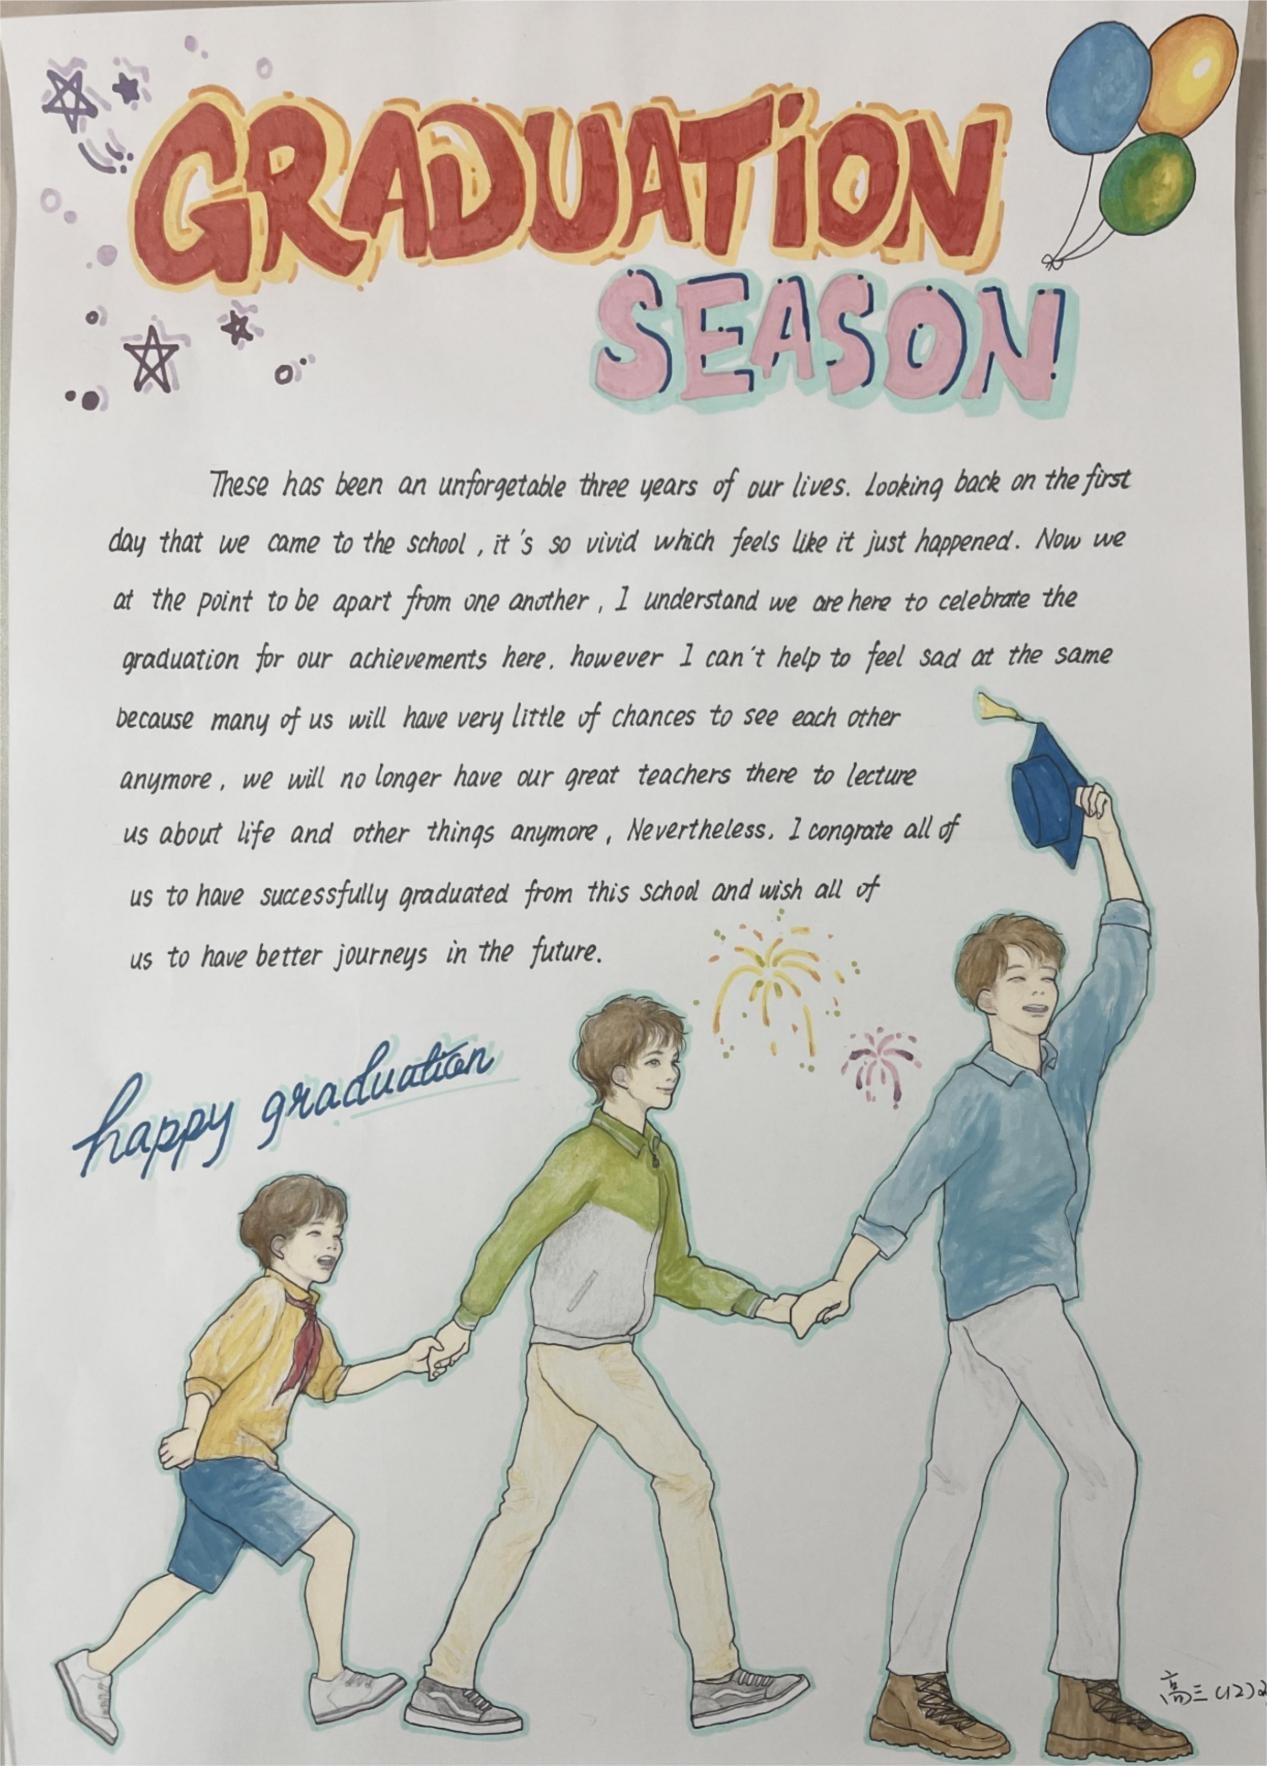 GRADUATiON
SEASON
These has been an unforgetable three years of our lives. Looking back on the first
day that we came to the school , it's so vivid which feels like it just happened. Now we
at the point to be apart from one another , I understand we are here to celebrate the
graduation for our achievements here. however I can't help to feel sad at the same
because many of us will have very little of chances to see each other
anymore , we will no longer have our great teachers there to lecture
us about life and other things anymore , Nevertheless. I congrate all of
us to have successfully graduated from this school and wish all of
us to have better journeys in the future.
happy graduation
高三(12)